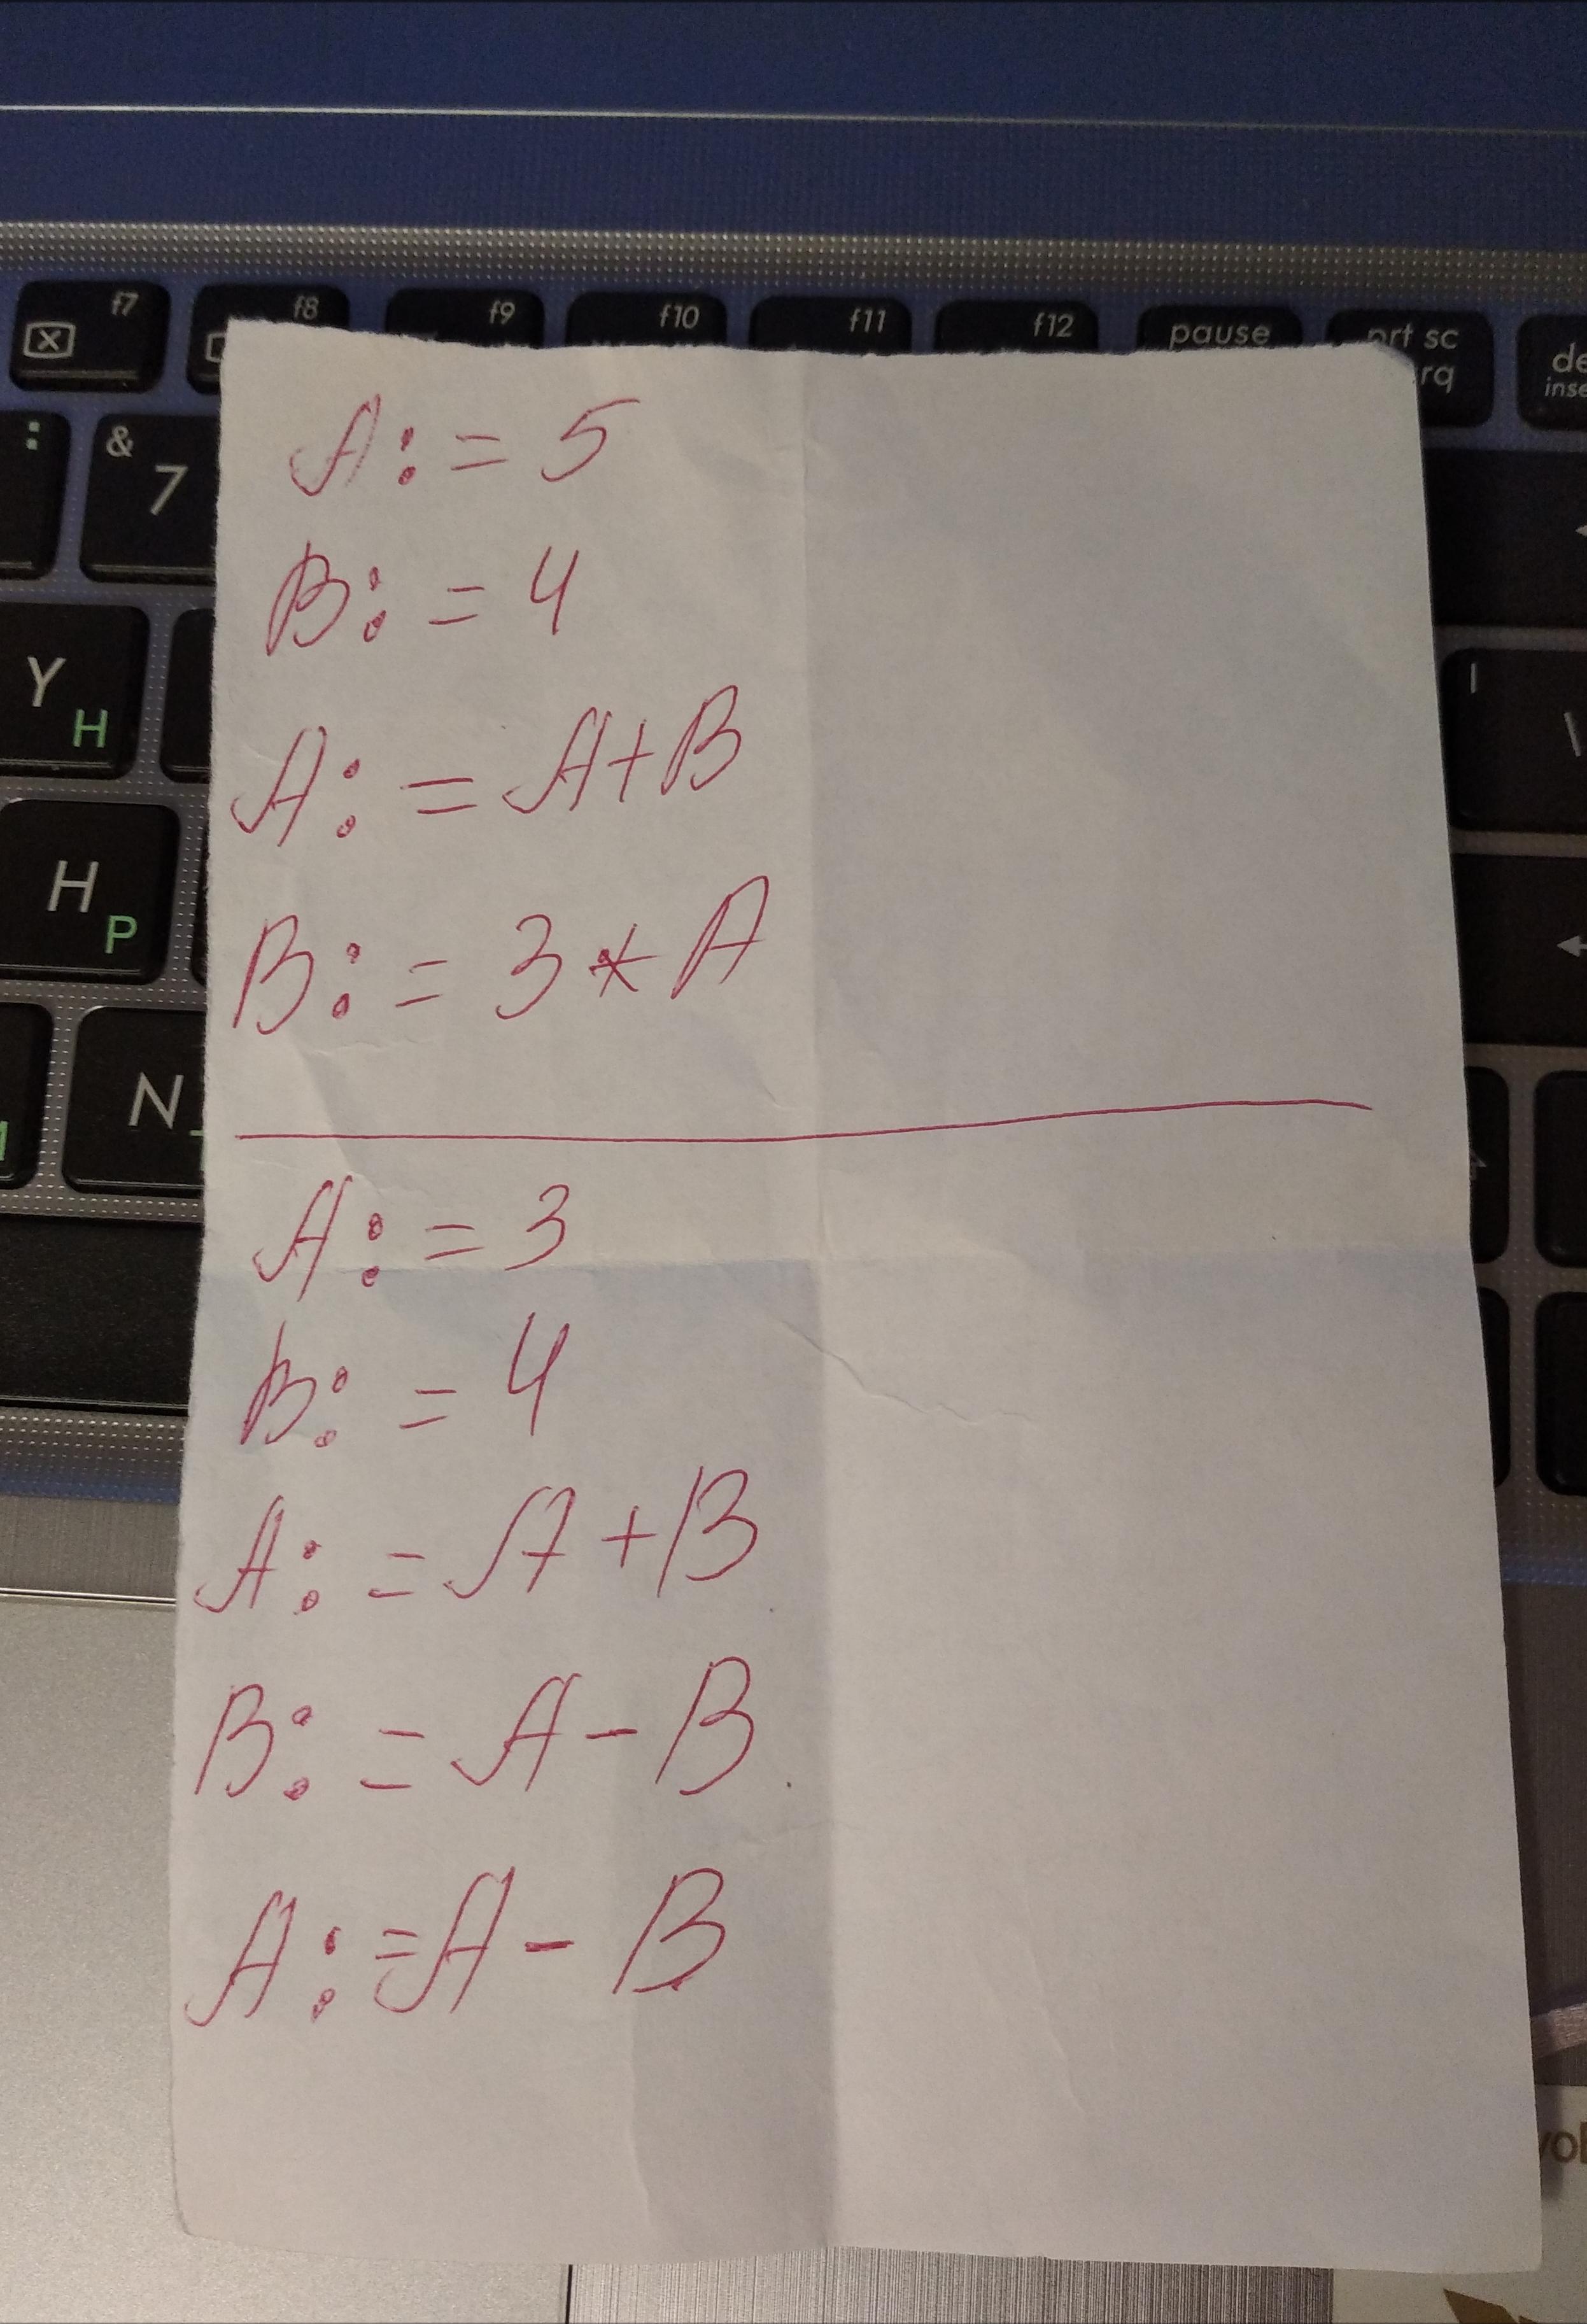 f7
f8
f9
f10
f11
f12
pause
prt sc
rq
de
inse
:
&
7
Y
H
H
P
N
A:= 5
B:= 4
A:= A+B
B:= 3*A
A:= 3
B:= 4
A:= A+B
B:= A-B
A:=A-B